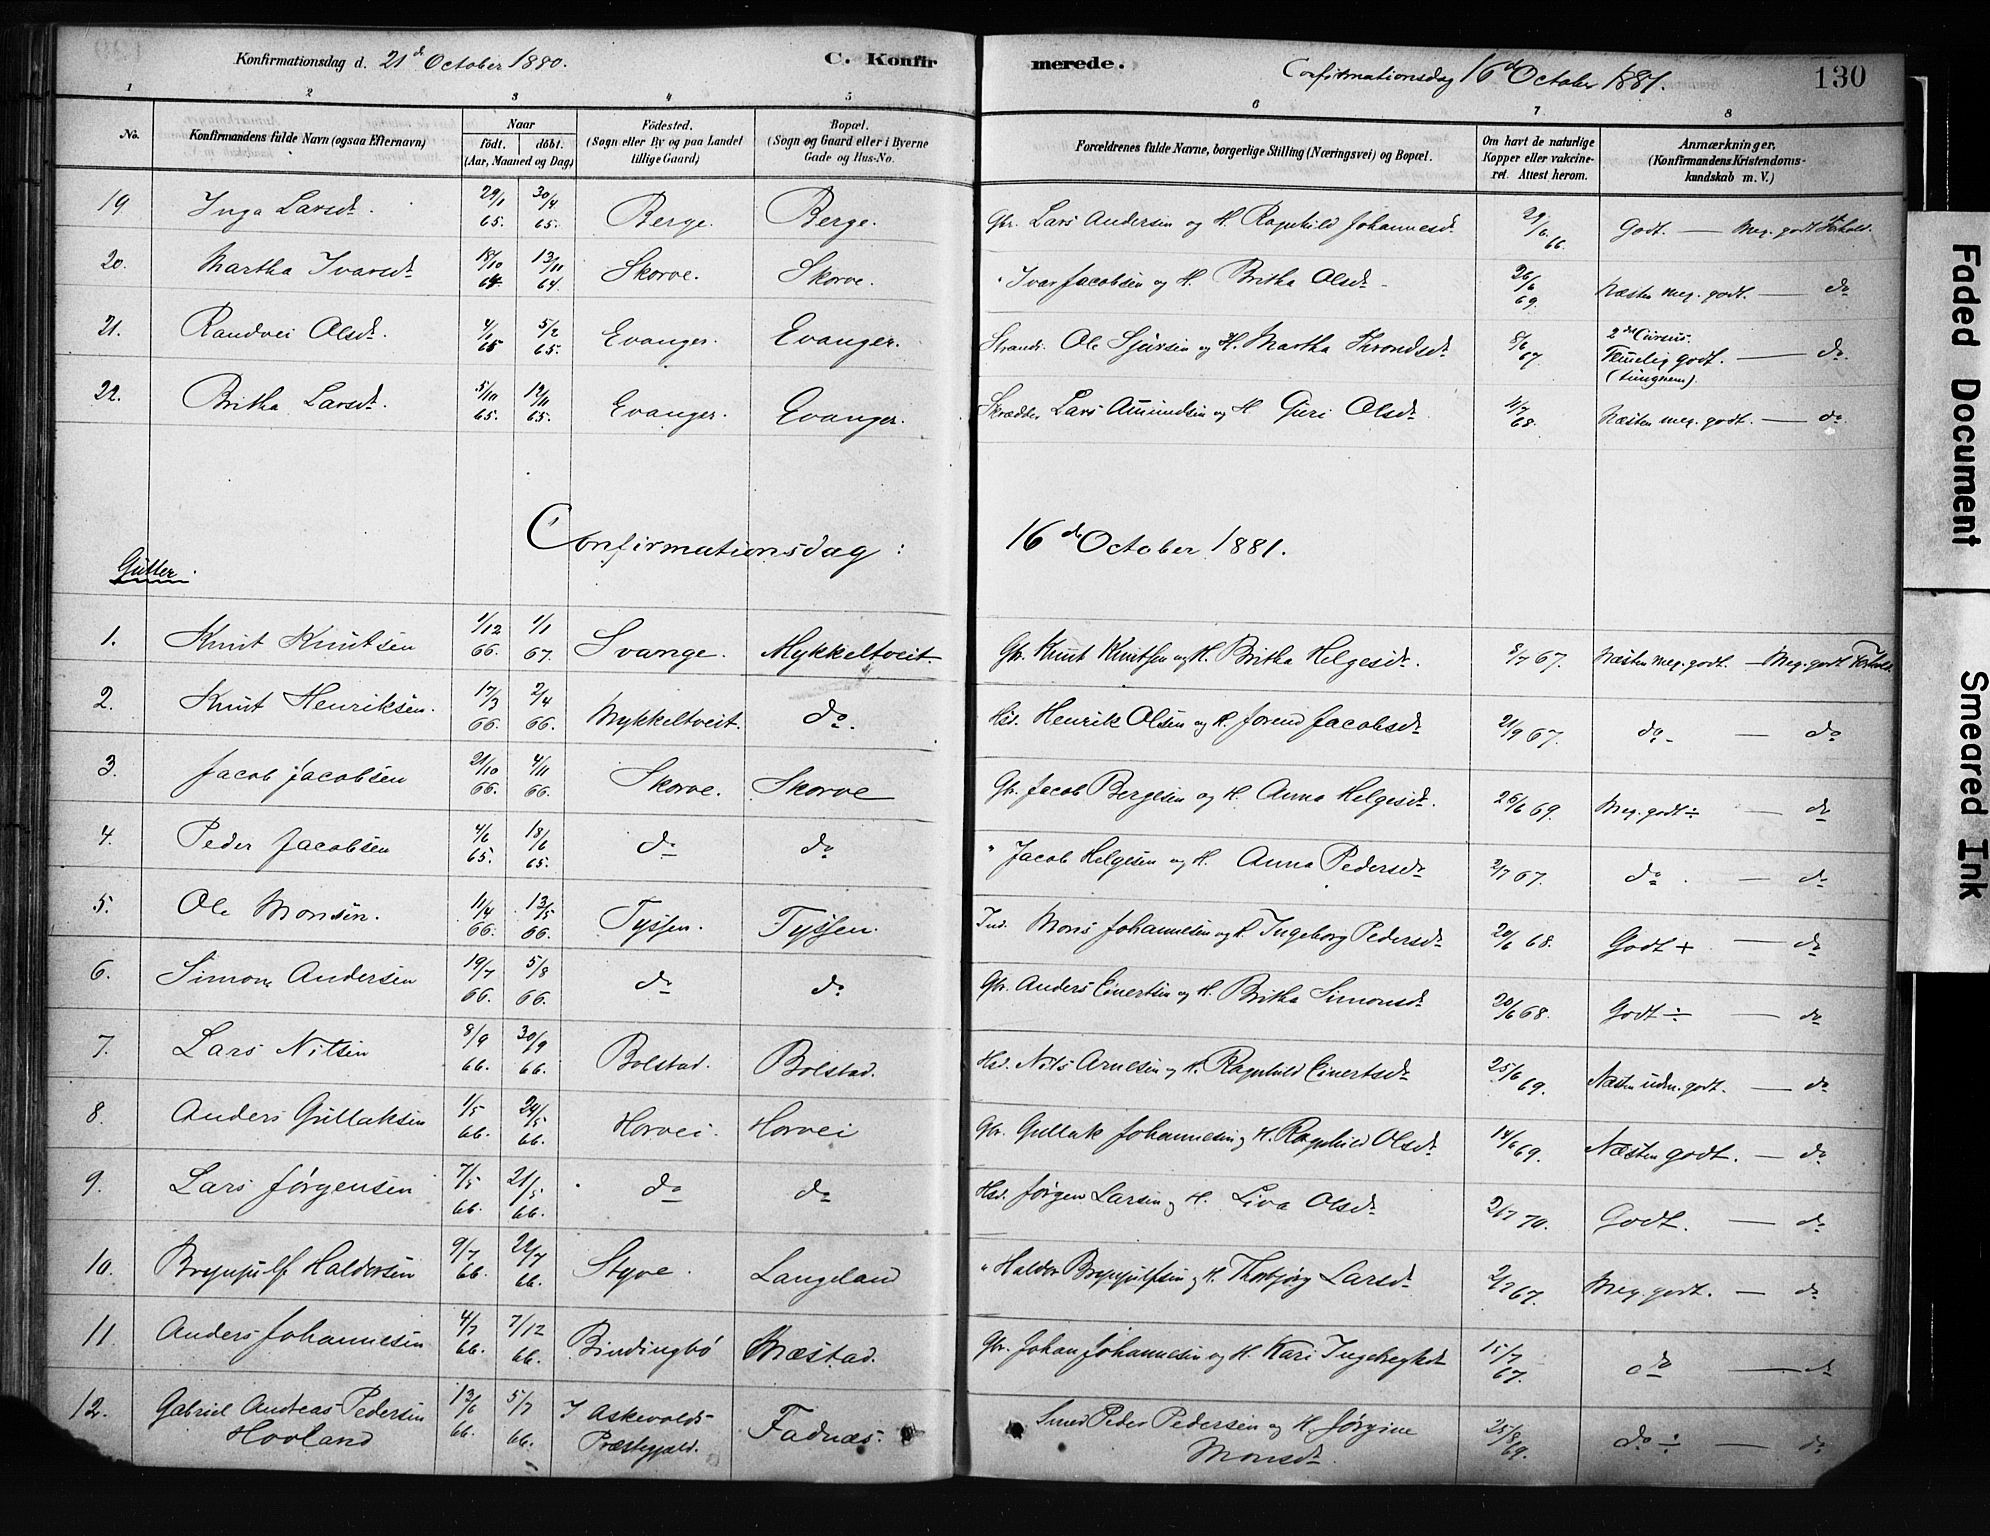 Konfirmationsdag d. 21de October 1880. C. Konfirmerede. Confirmationsdag 16d October 1881. 130
1 2 3 4 5 6 7 8
No. Konfirmandens fulde Navn (ogsaa Efternavn) Naar födt. döbt. (Aar, Maaned og Dag) Födested. (Sogn eller By og paa Landet tillige Gaard) Bopæl. (Sogn og Gaard eller i Byerne Gade og Hus-No. Forældrenes fulde Navne, borgerlige Stilling (Næringsvei) og Bopæl. Om havt de naturlige Kopper eller vakcineret. Attest herom. Anmærkninger. (Konfirmandens Kristendomskundskab m. V.)
19 Inga Larsdr. 29/1 65. 30/4 65. Berge. Berge. Gbr. Lars Andersen og H. Ragnhild Johannesdr 29/6 66. Godt. — Meg. godt Forhold.
20. Martha Ivarsdr 18/10 64. 13/11 64. Skorve. Skorve. " Ivar Jacobsen og H. Britha Olsdr 26/6 69. Næsten meg. godt. — do
21. Randvei Olsdr. 4/1 65 5/2 65. Evanger. Evanger. Strands. Ole Sjursen og H. Martha Throndsdr 8/6 67. 2det Cursus. Temelig godt. (tungnem). — do.
22. Britha Larsdr. 5/10 65. 19/11 65. Evanger. Evanger. Skrædder Lars Amundsen og H Guri Olsdr 4/7 68. Næsten meg. godt. — do
Confirmationsdag: 16de October 1881.
Gutter.
1. Knut Knutsen 1/12 66. 1/1 67. Svange. Mykkeltveit. Gbr. Knut Knutsen og H. Britha Helgesdr. 8/7 67. Næsten meg. godt. — Meg. godt Forhold.
2. Knut Henriksen. 17/3 66. 2/4 66. Mykkeltveit. do. Hsd. Henrik Olsen og H. Jorend Jacobsdr 21/9 67. do. — do
3. Jacob Jacobsen 21/10 66. 4/11 66. Skorve. Skorve Gbr. Jacob Bergesen og H. Anna Helgesdr. 26/6 69. Meg. godt ÷ do
4. Peder Jacobsen 4/6 65. 18/6 65. do do " Jacob Helgesen og H. Anna Pedersdr 2/7 67. do. — do
5. Ole Monsen. 11/4 66. 13/5 66. Tyssen. Tyssen. Ind. Mons Johannesen og H. Ingeborg Pedersdr 20/6 68. Godt + — do
6. Simon Andersen 19/7 66. 5/8 66. do do. Gbr. Anders Einertsen og H. Britha Simonsdr 20/6 68. Godt ÷ — do
7. Lars Nilsen 8/9 66. 30/9 66. Bolstad. Bolstad. Hsd. Nils Arnesen og H. Ragnhild Einertsdr 25/6 69. Næsten udm. godt. — do
8. Anders Gullaksen 1/5 66. 24/5 66. Horvei. Horvei Gbr. Gullak Johannesen og H. Ragnhild Olsdr 14/6 69. Næsten godt. — do
9. Lars Jørgensen 7/5 66. 21/5 66. do do Hsd. Jørgen Larsen og H. Liva Olsdr 2/7 70. Godt. — do
10. Brynjulf Haldorsen 9/7 66. 22/7 66. Styve. Langeland " Haldor Brynjulfsen og H. Thorbjørg Larsdr 2/7 67. Meg. godt. — do
11. Anders Johannesen 4/7 66. 7/12 66. Bindingbø Mæstad. Gbr. Johan Johannesen og H. Kari Ingebregtsdr 15/7 67. do — do
12. Gabriel Andreas Pedersen Hovland 12/6 66. 5/7 66. I Askevolds Præstegjæld. Fadnæs. Smed Peder Pedersen og H. Jørgine Monsdr. 25/8 69. do ÷ — do
Faded Document
Smeared Ink